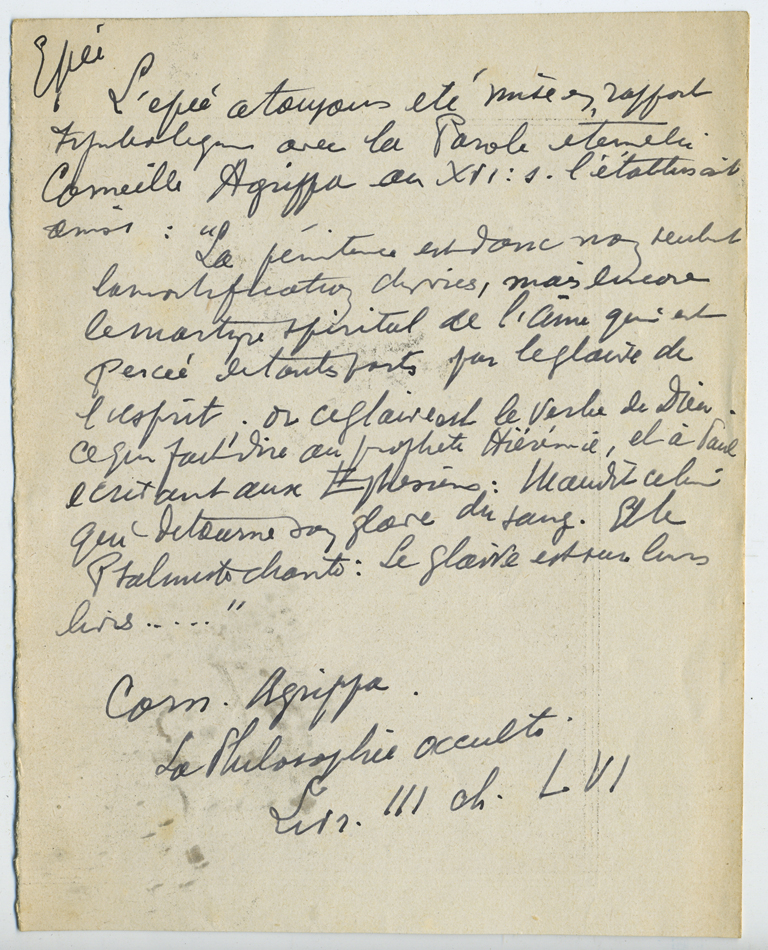 Epée
L'epée a toujours eté mise en rapport
symbolique avec la Parole éternelle
Corneille Agrippa au XVI: s. l'établissait
ainsi : "
La pénitence est donc non seulemt
la mortification des vices, mais encore
le martyre spirituel de l'âme qui est
Percée de toutes parts par le glaive de
l'esprit. or ce glaive est le Verbe de Dieu.
ce qui fait dire au prophète Hiérémie, et à Paul
ecrivant aux Ephesiens: Maudit celui
qui detourne son glaive du sang. Et le
Psalmiste chante: Le glaive est sur leurs
levres ....."
Corn. Agrippa.
La Philosophie occulte.
Livr. III ch. LVI